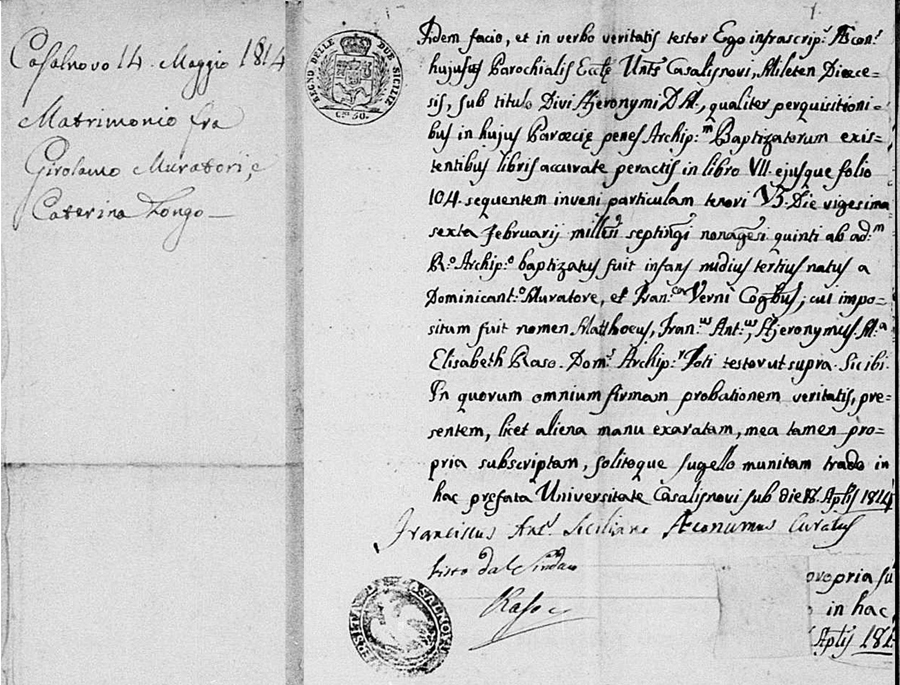 Casalnovo 14. Maggio 1814
Matrimonio fra
Girolamo Muratori, e
Caterina Longo
REGNO DELLE DUE SICILIE
C.mi 50.
Fidem facio, et in verbo veritatis testor Ego infrascrip.s Æcon.s
hujusus Parochialis Ecclę Unts Casalisnovi, Mileten Diœce=
sis, sub titulo Divi Hjeronymi D M, qualiter perquisitioni=
bus in hujus Parœcię penes Archip.m Baptizatorum exis=
tentibus libris accurate peractis in libro VII. ejusque folio
104. sequentem inveni particulam tenori V3. Die vigesima
sexta Februarij milleni septingi nonagesi quinti ab ad.m
R.o Archip.o baptizatus fuit infans nudius tertius natus a
Dominicant.o Muratore, et Fran.ca Verni Cogbus; cui impo=
situm fuit nomen Matthoeus, Fran.us Ant.us, Hjeronymus. M.a
Elisabeth Raso. Dom.s Archip.r Foti testor ut supra. Sic ibi.
In quorum omnium firmam probationem veritatis, pre=
sentem, licet aliena manu exaratam, mea tamen pro=
pria subscriptam, solitoque sugello munitam trado in
hac pręfata Universitate Casalisnovi sub die Aplis 1814
Franciscus Ant.s Siciliano Æconumus Curatus
Visto dal Sindaco
Raso
opria su
in hac
Aplis 181